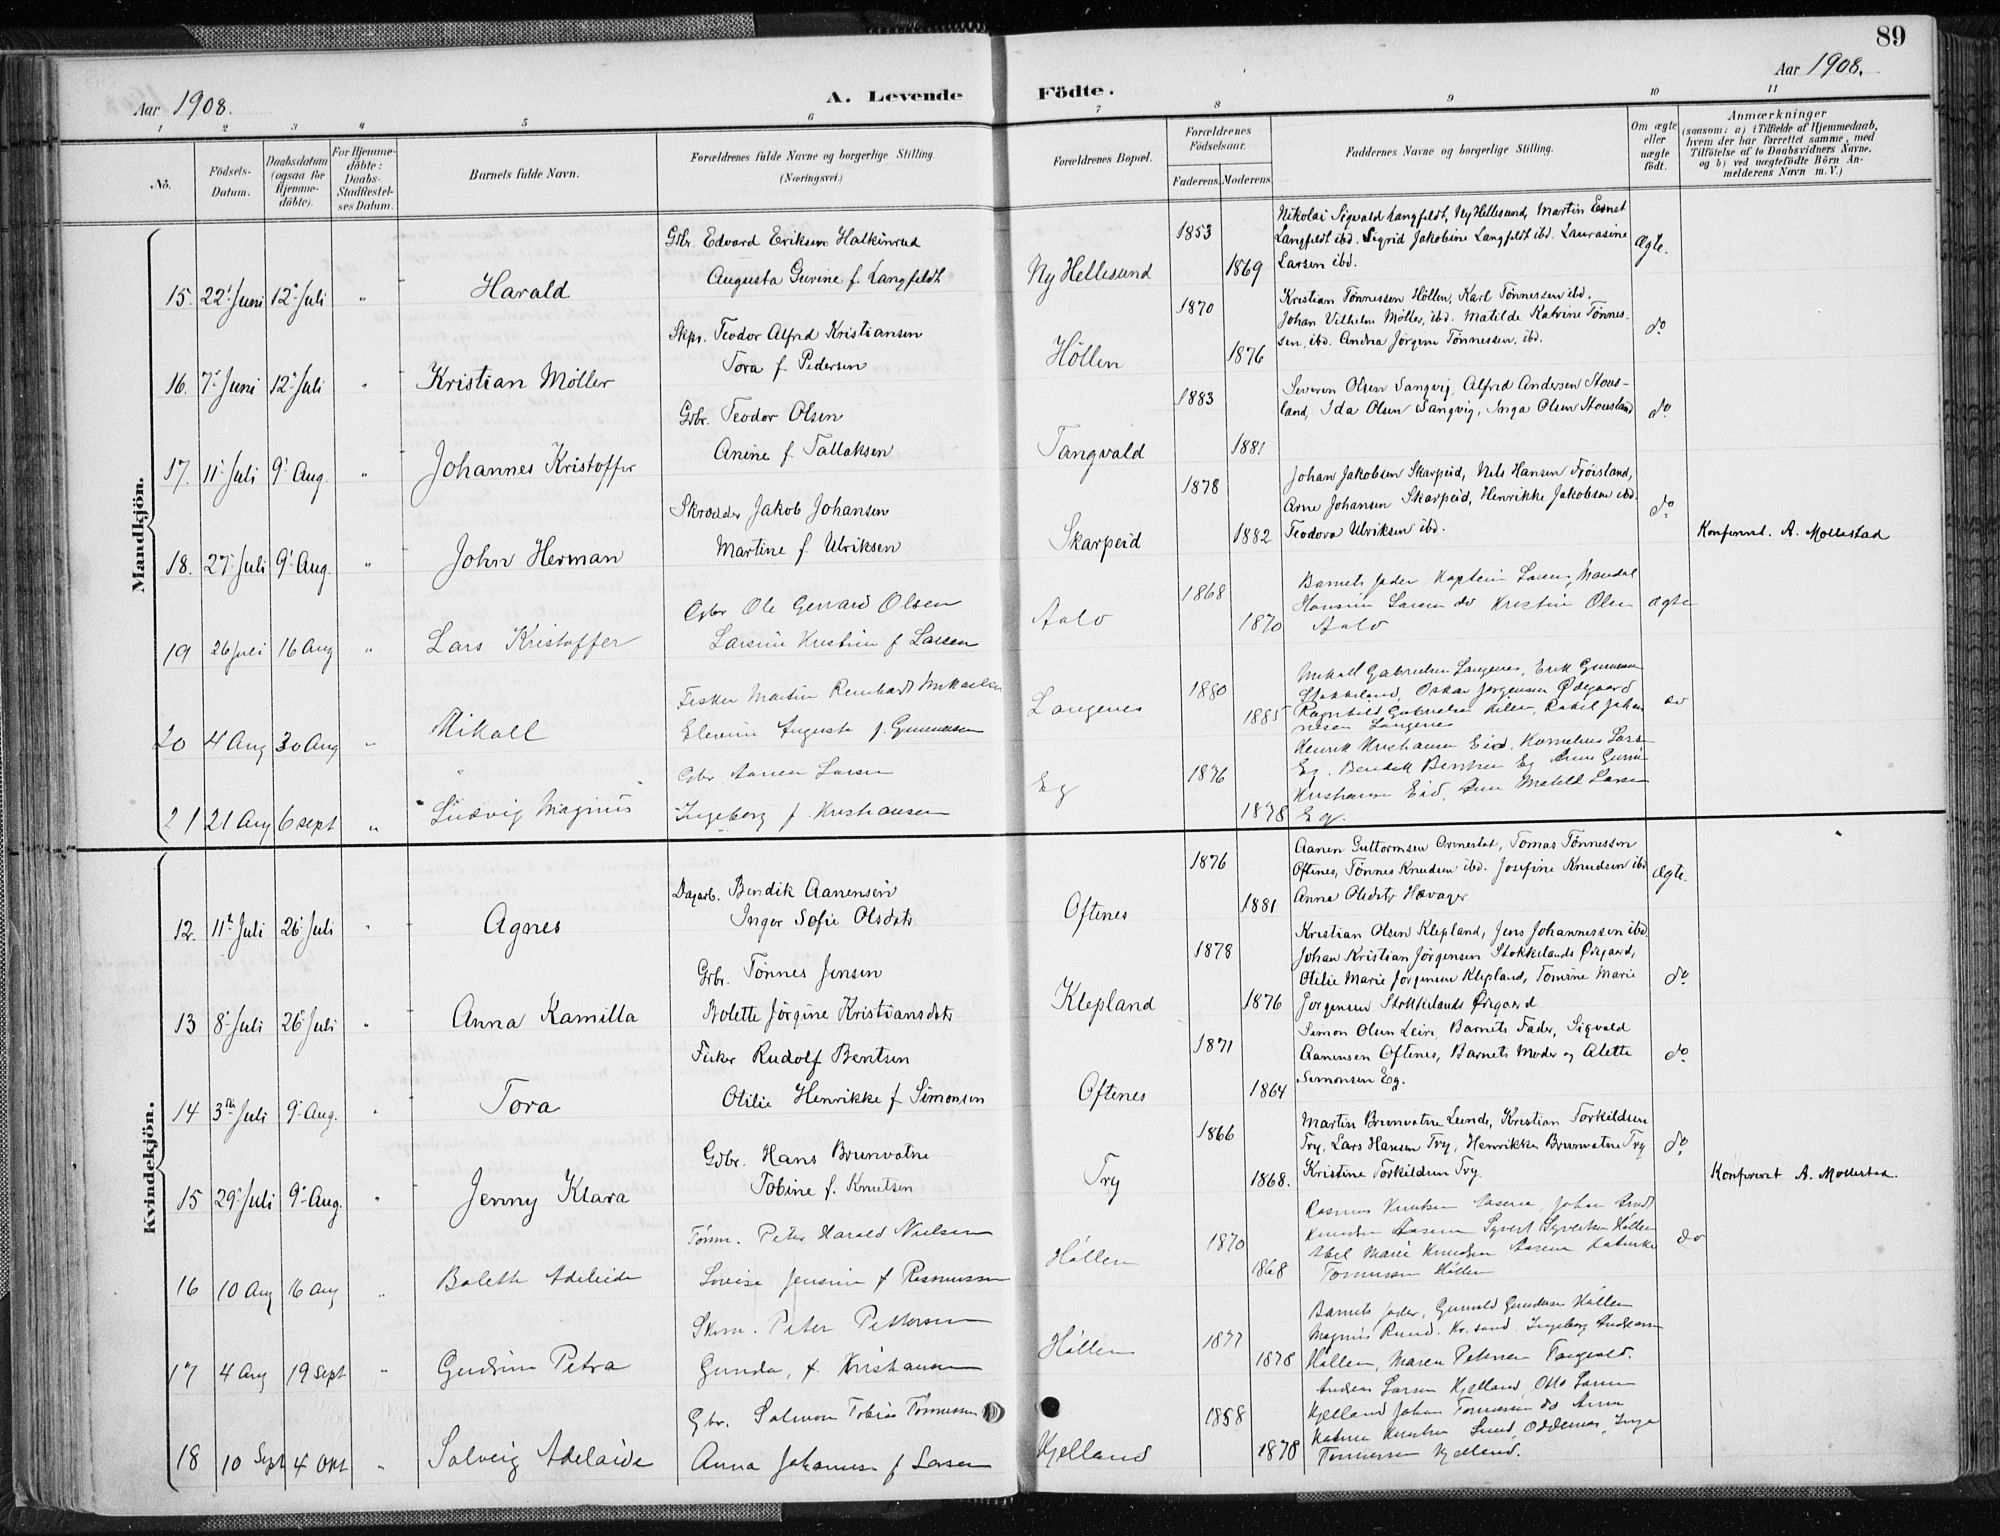 89
Aar 1908.
A. Levende
Födte.
Aar 1908.
1 2 3 4 5 6 7 8 9 10 11
No.
Födsels-Datum.
Daabsdatum (ogsaa for Hjemme-döbte).
For Hjemme-döbte: Daabs-Stadfæstel-ses Datum.
Barnets fulde Navn.
Forældrenes fulde Navne og borgerlige Stilling.
(Næringsvei.)
Forældrenes Bopæl.
Forældrenes Födselsaar.
Faderens. Moderens.
Faddernes Navne og borgerlige Stilling.
Om ægte eller uægte födt.
Anmærkninger
(saasom: a) i Tilfælde af Hjemmedaab, hvem der har forrettet samme, med Tilföielse af to Daabsvidners Navne, og b) ved uægtefödte Börn An-melderens Navn m. V.)
Mandkjön.
15. 22' Juni 12' Juli " Harald
Gbr. Edvard Eriksen Halkinrud
Augusta Guvine f. Langfeldt
Ny Hellesund 1853 1869
Nikolai Sigvald Langfeldt, Ny Hellesund, Martin Ernst
Langfeldt ibd. Sigrid Jakobine Langfeldt ibd. Laurasine
Larsen ibd.
Ægte.
16. 7' Juni 12' Juli " Kristian Möller
Skpr. Teodor Alfred Kristiansen
Tora f. Pedersen
Höllen 1870 1876
Kristian Tönnessen Höllen, Karl Tönnessen ibd.
Johan Vilhelm Möller, ibd. Matilde Katrine Tönnes-
sen, ibd. Andrea Jörgine Tönnessen, ibd.
do
17. 11' Juli 9' Aug. " Johannes Kristoffer
Gbr. Teodor Olsen
Anine f. Tallaksen
Tangvald 1883 1881
Severin Olsen Sangvig, Alfred Andersen Stous-
land, Ida Olsen Sangvig, Inga Olsen Stousland
do
18. 27' Juli 9' Aug. " John Herman
Skrædder Jakob Johansen
Martine f. Ulriksen
Skarpeid 1878 1882
Johan Jakobsen Skarpeid, Nils Hansen Fröisland,
Arne Johansen Skarpeid, Henrikke Jakobsen ibd.
Teodora Ulriksen ibd.
do
Konferert. A. Mollestad
19 26 Juli 16 Aug " Lars Kristoffer
Gbr Ole Gerrard Olsen
Larsine Kristine f Larsen
Aalo 1868 1870
Barnets fader, Kaptein Larsen, Mandal
Larsen do Kristine Olsen
Aalo
Ægte
20 4 Aug 30 Aug " Mikall
Fisker Martin Reinhardt Mikaelsen
Augusta f. Gunnersen
Langenes 1880 1885
Mikall Gabrielsen Langenes, Erik
Stokkeland, Oskar Jørgensen Ødegaard
Ragnhild
Langenes
do
21 21 Aug 6 sept " Ludvig Magnus
Gbr Aanen Larsen
Ingeborg f. Kristiansen
Eg 1876 1878
Henrik Kristiansen Eid, Kornelius Larsen
Eg. Bendik Eg
Kristiansen Eid, Larsen
Eg.
Kvindekjön.
12. 11te Juli 26' Juli " Agnes
Dagarb. Bendik Aanensen
Inger Sofie Olsdtr.
Oftenes 1876 1881
Aanen Guttormsen Ormestat, Tomas Tönnesson
Oftenes, Tönnes Knudsen ibd. Josefine Knudsen ibd
Anna Olsdtr Hævager
Ægte.
13 8' Juli 26' Juli " Anna Kamilla
Gbr. Tönnes Jensen
Bolette Jörgine Kristiansdtr
Klepland 1878 1876
Kristian Olsen Klepland, Jens Johannessen ibd.
Johan Kristian Jörgensen Stokkelands Ødegaard,
Otilie Marie Jörgensen Klepland, Tomine Marie
Jörgensen Stokkelands Ødegaard
do
14 3die Juli 9' Aug. " Tora
Fisker Rudolf Bentsen
Otilie Henrikke f Simonsen
Oftenes 1871 1864
Simon Olsen Leire, Barnets Fader, Sigvald
Aanensen Oftenes, Barnets Moder og Alette
Simonsen Eg.
do
15 29' Juli 9' Aug. " Jenny Klara
Gbr. Hans Brunvatne
Tobine f. Knutsen
Try 1866 1868.
Martin Brunvatne Lunde, Kristian Torkildsen
Try, Lars Hansen Try, Henrikke Brunvatne Try
Kristine Torkildsen Try.
do
Konferert A. Mollestad.
16 10 Aug 16 Aug " Bolette Adeleide
Tömm. Peter Harald Nielsen
Lovise Jensine f Rasmussen
Höllen 1870 1868
Rasmus Knutsen Aasene Johan
Knudsen Aasene Syvert Syvertsen Höllen
Marie Knudsen Aasene
Tönnessen Höllen
do
17 4 Aug 19 Sept " Gudrun Petra
Skom. Peter Pettersen
Gunda, f. Kristiansen
Höllen 1877 1878
Barnets fader, Gunvald Gundersen Höllen
Magnus Rund. Kr.sand. Ingeborg Andersen
Höllen, Maren Petersen Tangvald.
18 10 Sept 4 Okt " Solveig Adelaide
Gbr. Salmon Tobias Tönnessen
Anna Johanne f Larsen
Kjelland 1858 1878
Andreas Larsen Kjelland, Otto Larsen
Kjelland Johan Tönnessen do Anna
Knutsen Lund, Oddernes, Inga
Tönnessen Kjelland.